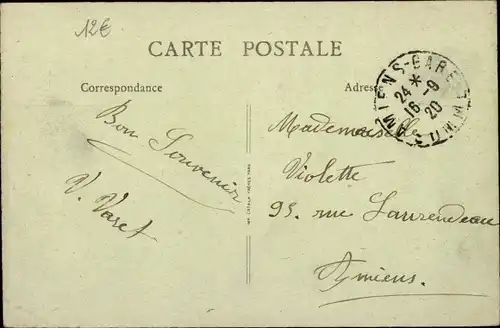 12€
CARTE POSTALE
Correspondance
Adresse
AMIENS-GARE
*
24
16 -9
20
SOMME
Bon Souvenir
V. Varet
Mademoiselle
Violette
95. rue Laurendeau
Amiens.
IMP. CATALA FRÈRES PARIS